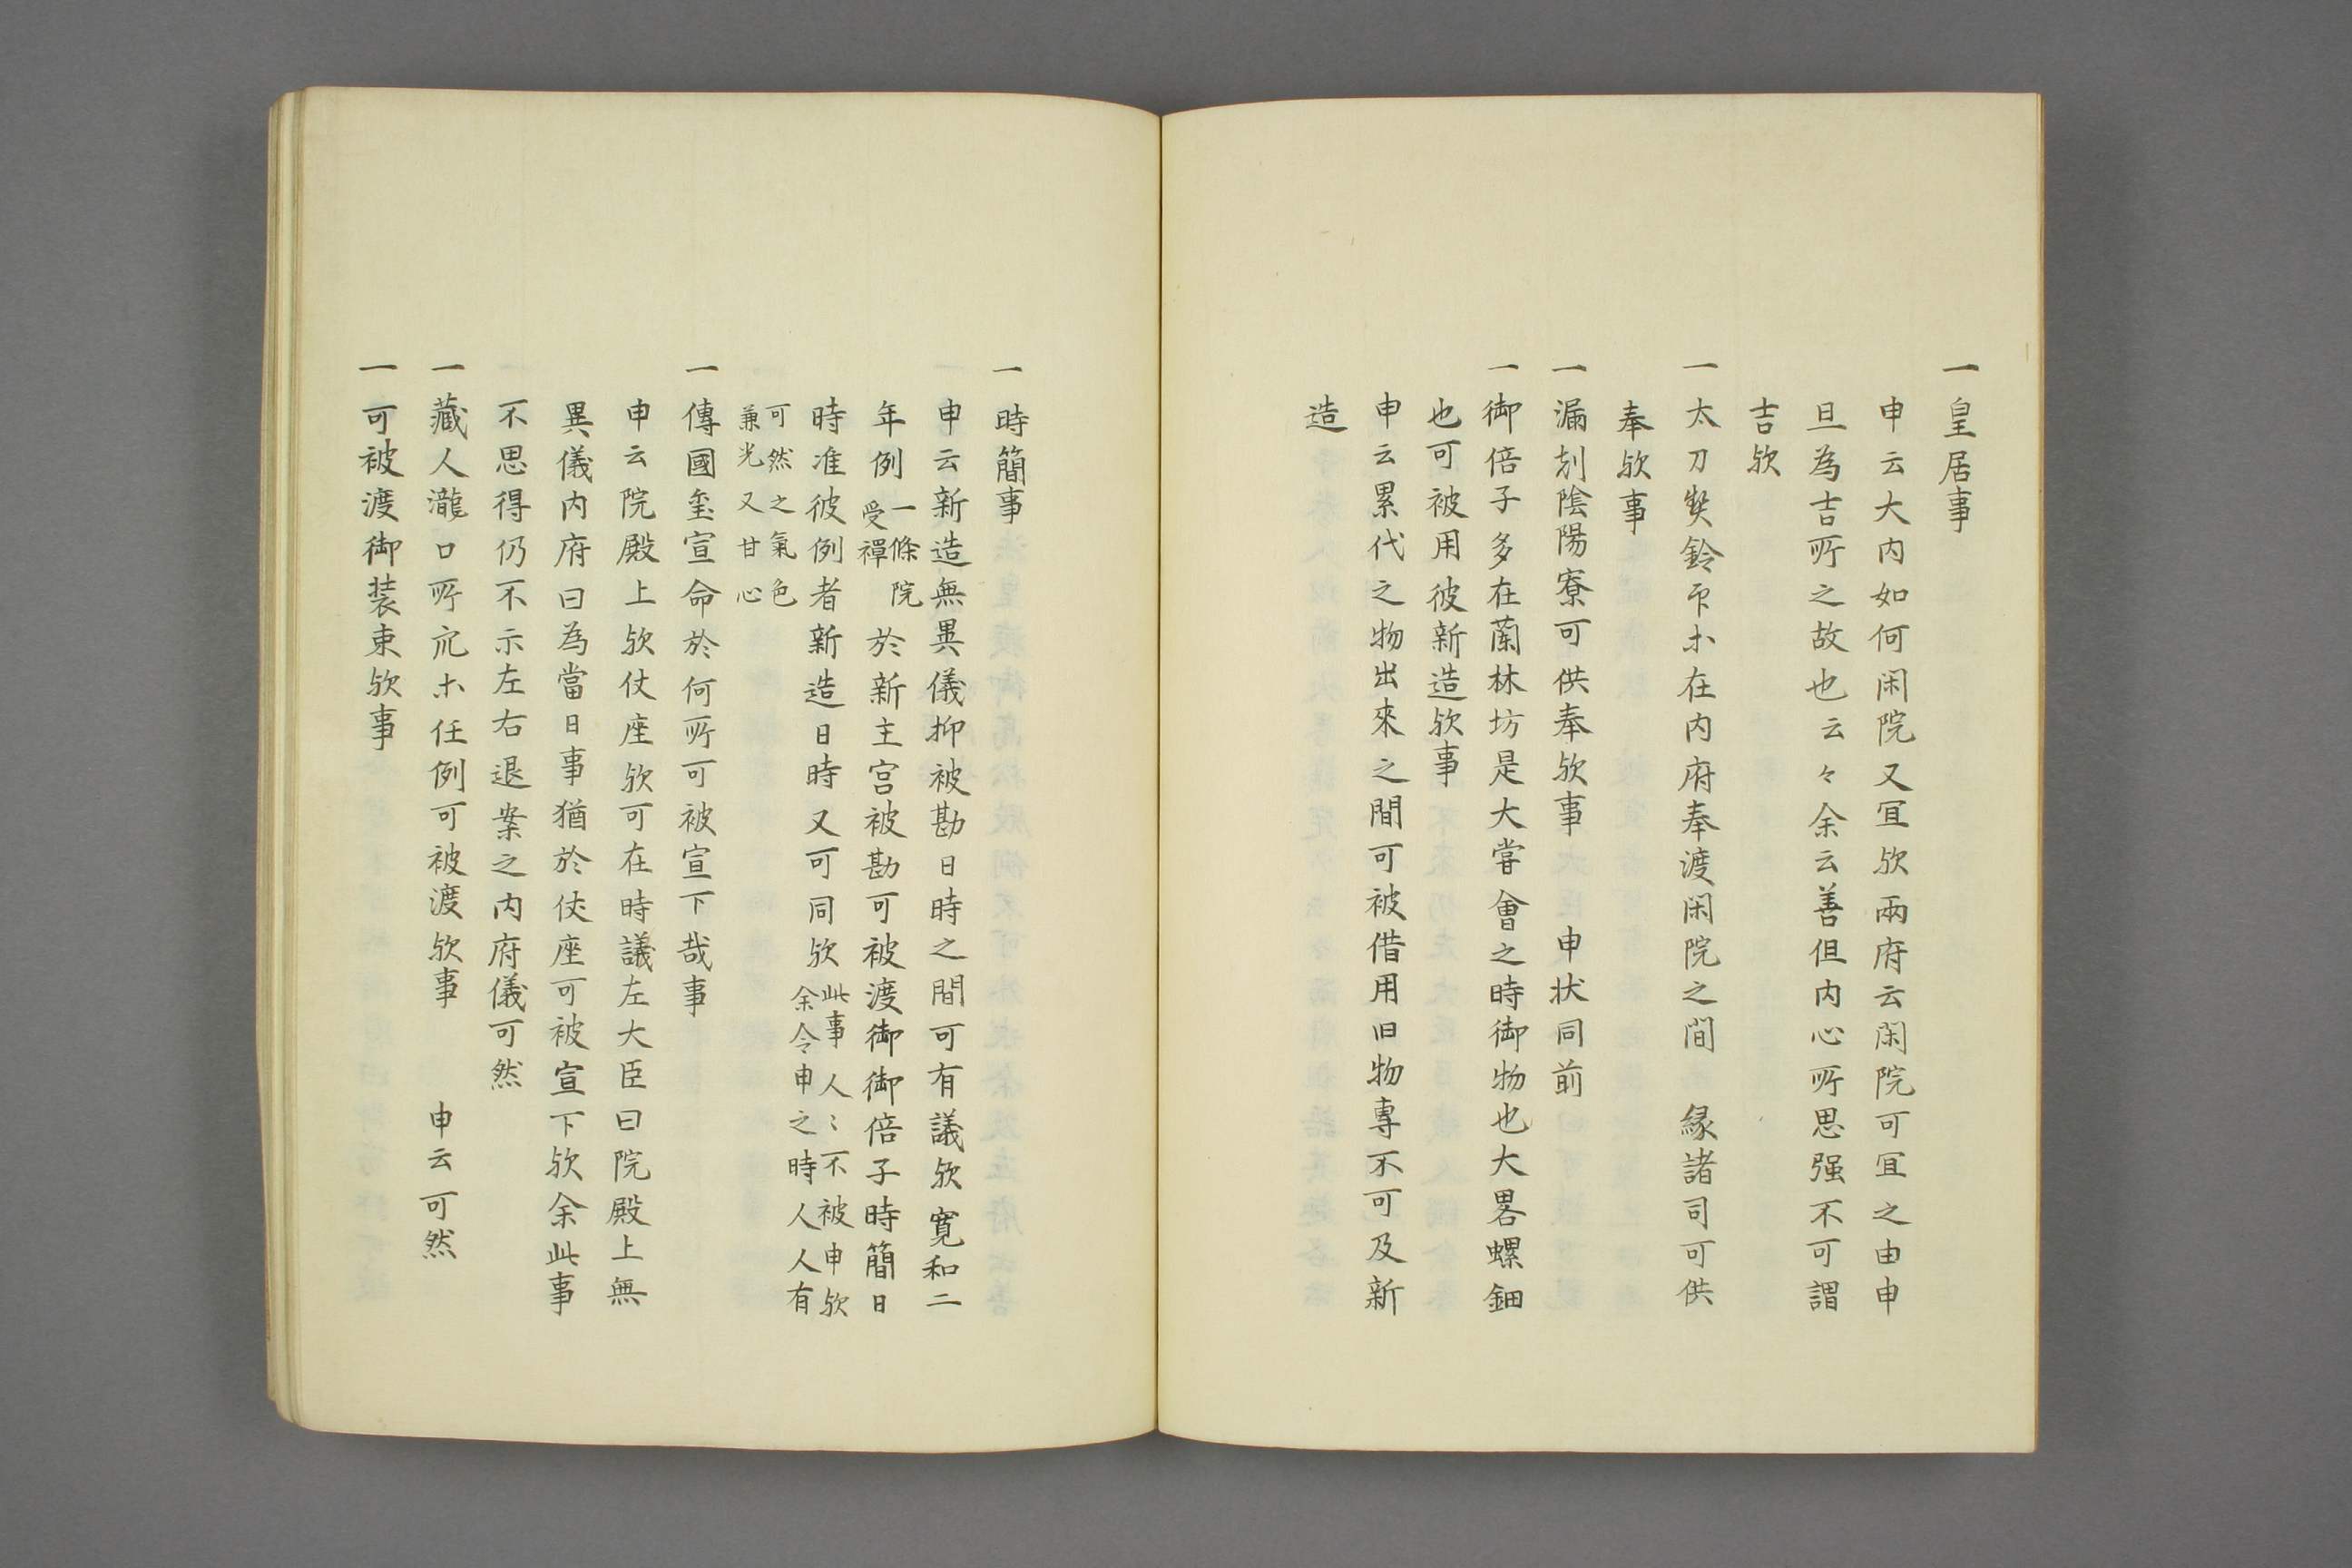 一皇居事
申云大内如何閑院又冝欤兩府云閑院可冝之由申
旦為吉所之故也云々余云善但内心所思强不可謂
吉欤
一太刀契鈴印ホ在内府奉渡閑院之間 縁諸司可供
奉欤事
一漏刻陰陽寮可供奉欤事 申状同前
一御倍子多在蘭林坊是大甞會之時御物也大畧螺鈿
也可被用彼新造欤事
申云累代之物出來之間可被借用旧物專不可及新
造
一時簡事
申云新造無異儀抑被勘日時之間可有議欤寛和二
年例一條院受禪於新主宮被勘可被渡御御倍子時簡日
時准彼例者新造日時又可同欤此事人〻不被申欤余令申之時人人有
可然之氣色兼光又甘心
一傳國璽宣命於何所可被宣下哉事
申云院殿上欤仗座欤可在時議左大臣曰院殿上無
異儀内府曰為當日事猶於仗座可被宣下欤余此事
不思得仍不示左右退案之内府儀可然
一藏人瀧口所宂ホ任例可被渡欤事 申云可然
一可被渡御装束欤事